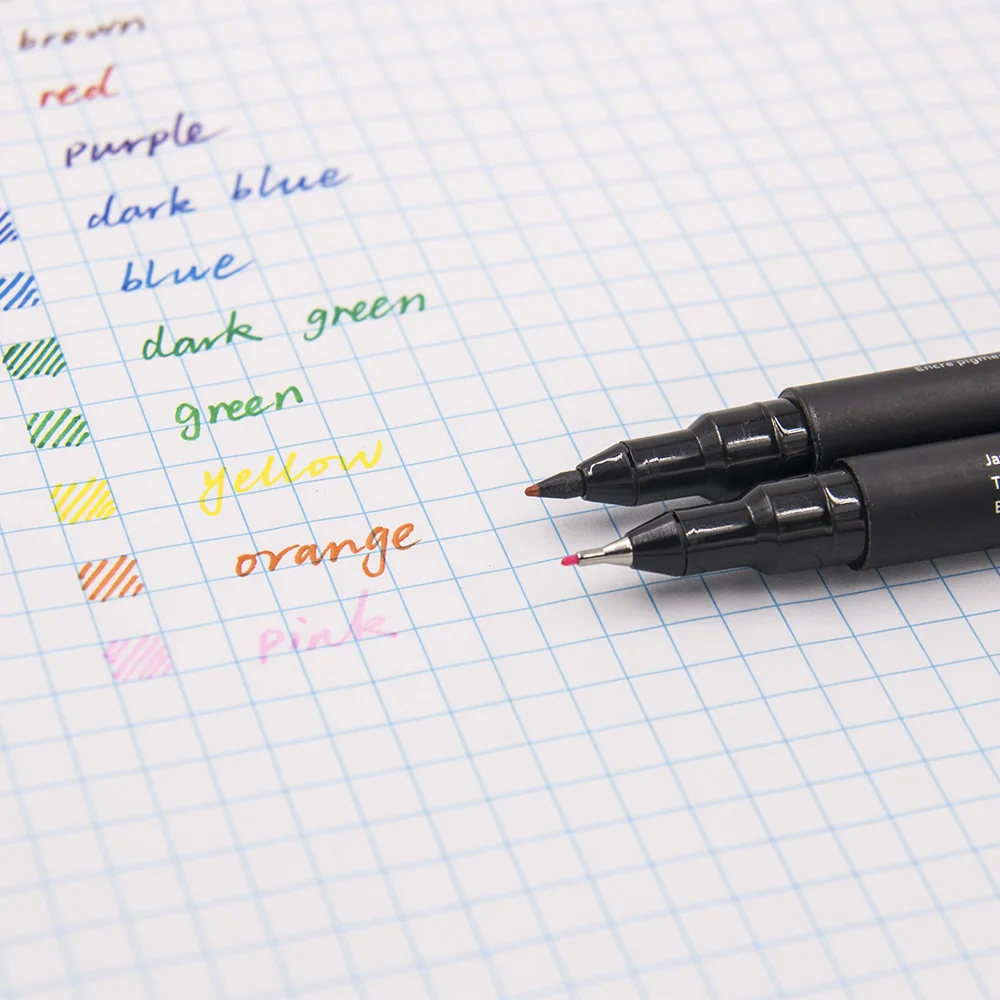 brown
red
purple
dark blue
blue
dark green
green
yellow
orange
pink
Encre